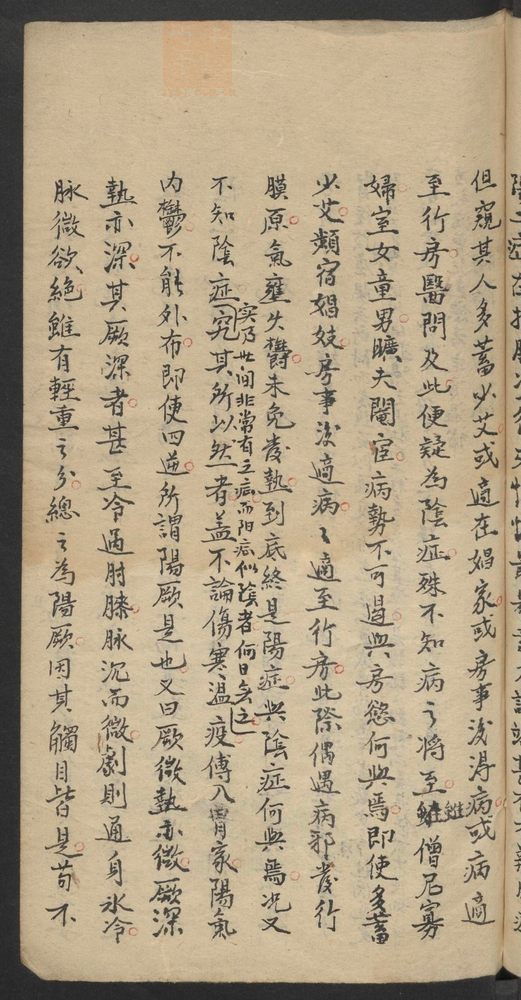 但窺其人多蓄少艾或適在娼家或房事後得病或病適
至行房醫問及此便疑為陰症殊不知病之將至雖僧尼寡
婦室女童男曠夫閹宦病勢不可遏與房慾何與焉即使多蓄
少艾頻宿娼妓房事後適病〻適至行房此際偶遇病邪發行
膜原氣壅火欝未免發熱到底終是陽症與陰症何與焉况又
不知陰症实乃世间非常有之病而阳病似陰者何日无之究其所以然者盖不論傷寒温疫傳入胃家陽氣
内欝不能外布即使四逆所謂陽厥是也又曰厥微熱亦微厥深
熱亦深其厥深者甚至冷過肘膝脉沉而微劇則通身氷冷
脉微欲絶雖有輕重之分總之為陽厥因其觸目皆是苟不